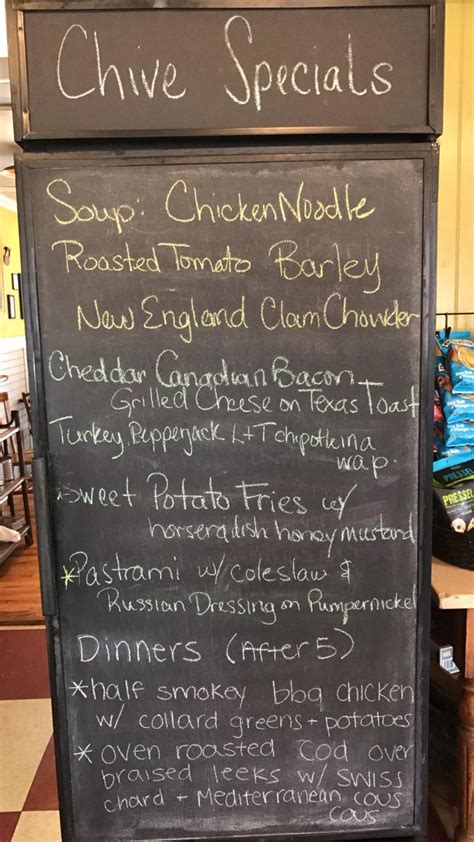 Chive Specials
Soup: Chicken Noodle
Roasted Tomato Barley
New England Clam Chowder
Cheddar Canadian Bacon
Grilled Cheese on Texas Toast
Turkey Pepperjack L+T chipotle in a
wrap.
Sweet Potato Fries w/
horseradish honey mustard
*Pastrami w/ coleslaw &
Russian Dressing on Pumpernickel
Dinners (After 5)
*half smokey bbq chicken
w/ collard greens + potatoes
* oven roasted cod over
braised leeks w/ swiss
chard + Mediterranean cous
cous
PRESSED